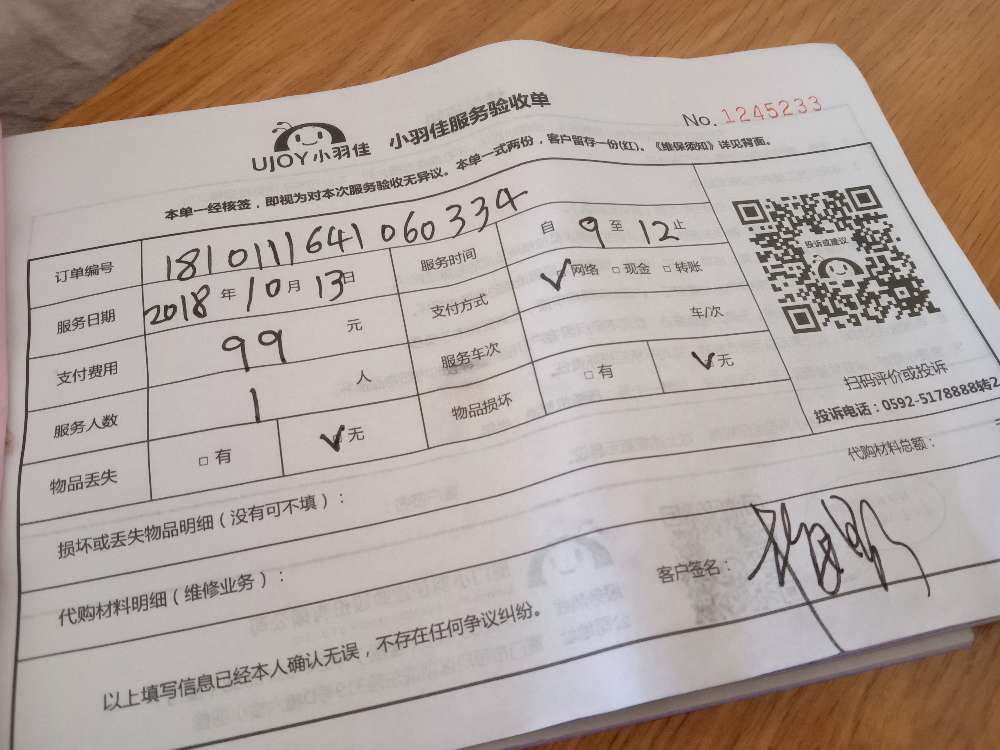 UJOY小羽佳 小羽佳服务验收单 No. 1245233
本单一经核签，即视为对本次服务验收无异议。本单一式两份，客户留存一份(红)。《维保须知》详见背面。
订单编号 1810111641060334
服务日期 2018年10月13日 服务时间 自9至12止
支付费用 99元 支付方式 ✓网络 □现金 □转账
服务人数 1人 服务车次 车/次
物品丢失 □有 ✓无 物品损坏 □有 ✓无
投诉或建议
扫码评价或投诉
投诉电话：0592-5178888转2
损坏或丢失物品明细（没有可不填）：
代购材料明细（维修业务）： 代购材料总额：
以上填写信息已经本人确认无误，不存在任何争议纠纷。 客户签名：